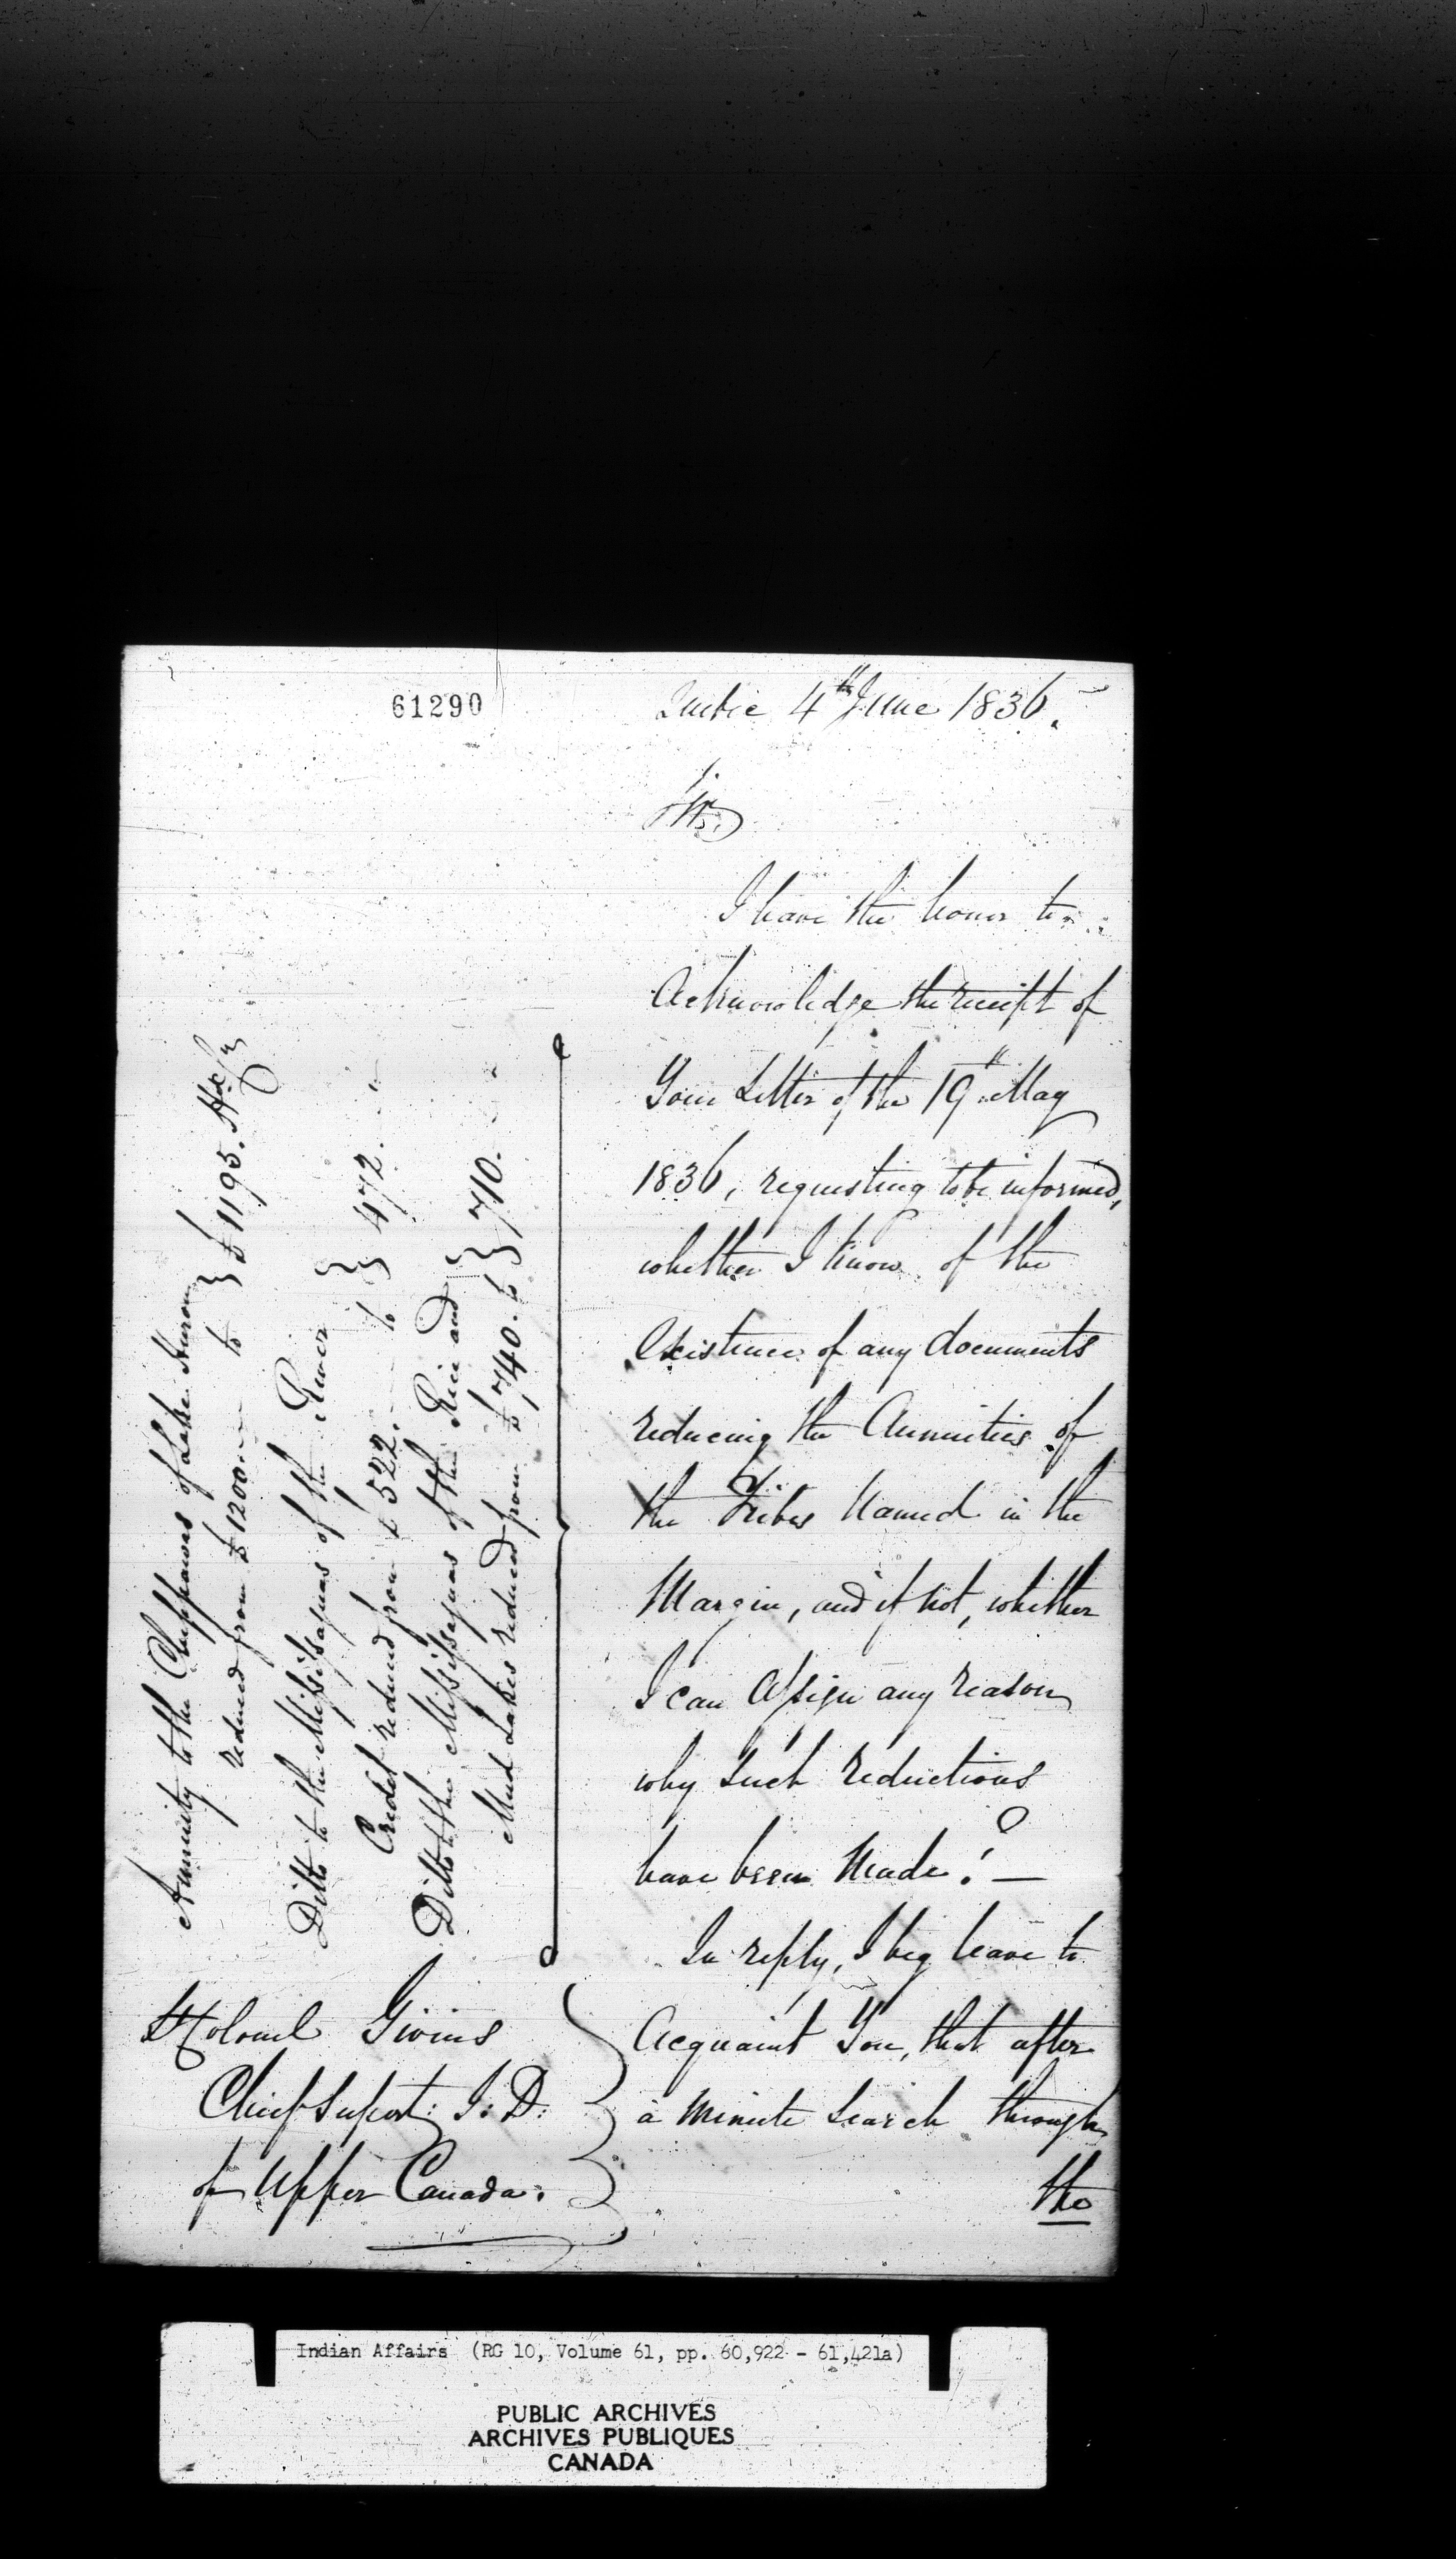 61290
Quebec 4th June 1836.
Sir,
I have the honor to
Acknowledge the receipt of
Your Letter of the 19th May
1836, requesting to be informed,
whether I know of the
Existence of any documents
reducing the Annuities of
the Tribes Named in the
Margin, and if not, whether
I can Assign any reason
why Such reductions
have been Made? —
In reply, I beg leave to
Acquaint You, that after
a Minute Search through
the
Annuity to the Chippawas of Lake Huron
reduced from £1200. — to £1195. Hx Cy
Ditto to the Mississaguas of the River
Credit reduced from £522. — to 472. "
Ditto to the Mississaguas of the Rice and
Mud Lakes reduced from £740. to 710. "
Lt Colonel Givins
Chief Supert: I: D:
of Upper Canada.
Indian Affairs (RG 10, Volume 61, pp. 60,922 - 61,421a)
PUBLIC ARCHIVES
ARCHIVES PUBLIQUES
CANADA